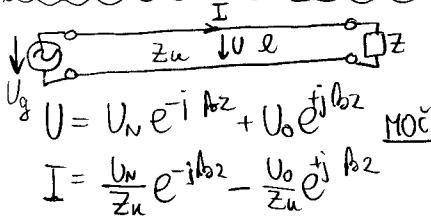 I
Zk ↓U l Z
Ug
U = U_N e^{-jβz} + U_o e^{+jβz} MOČ
I = U_N/Zk e^{-jβz} - U_o/Zk e^{+jβz}